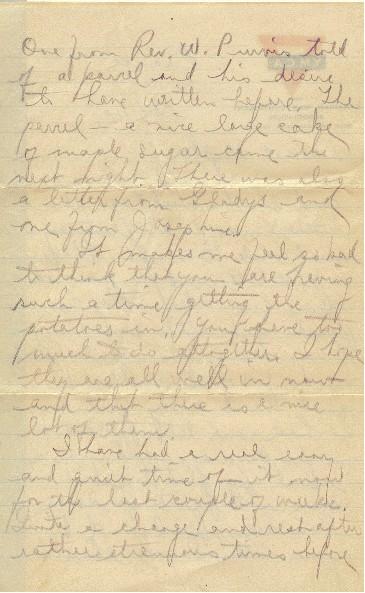 One from Rev. W. Purvis told
of a parcel and his desire
to have written before. The
parcel — a nice large cake
of maple sugar came the
next night. There was also
a letter from Gladys and
one from Josephine.
It makes me feel so bad
to think that you are having
such a time getting the
potatoes in. You have too
much to do altogether. I hope
they are all well in now
and that there is a nice
lot of them.
I have had a real easy
and quiet time of it now
for the last couple of weeks.
Quite a change and rest after
rather strenuous times before